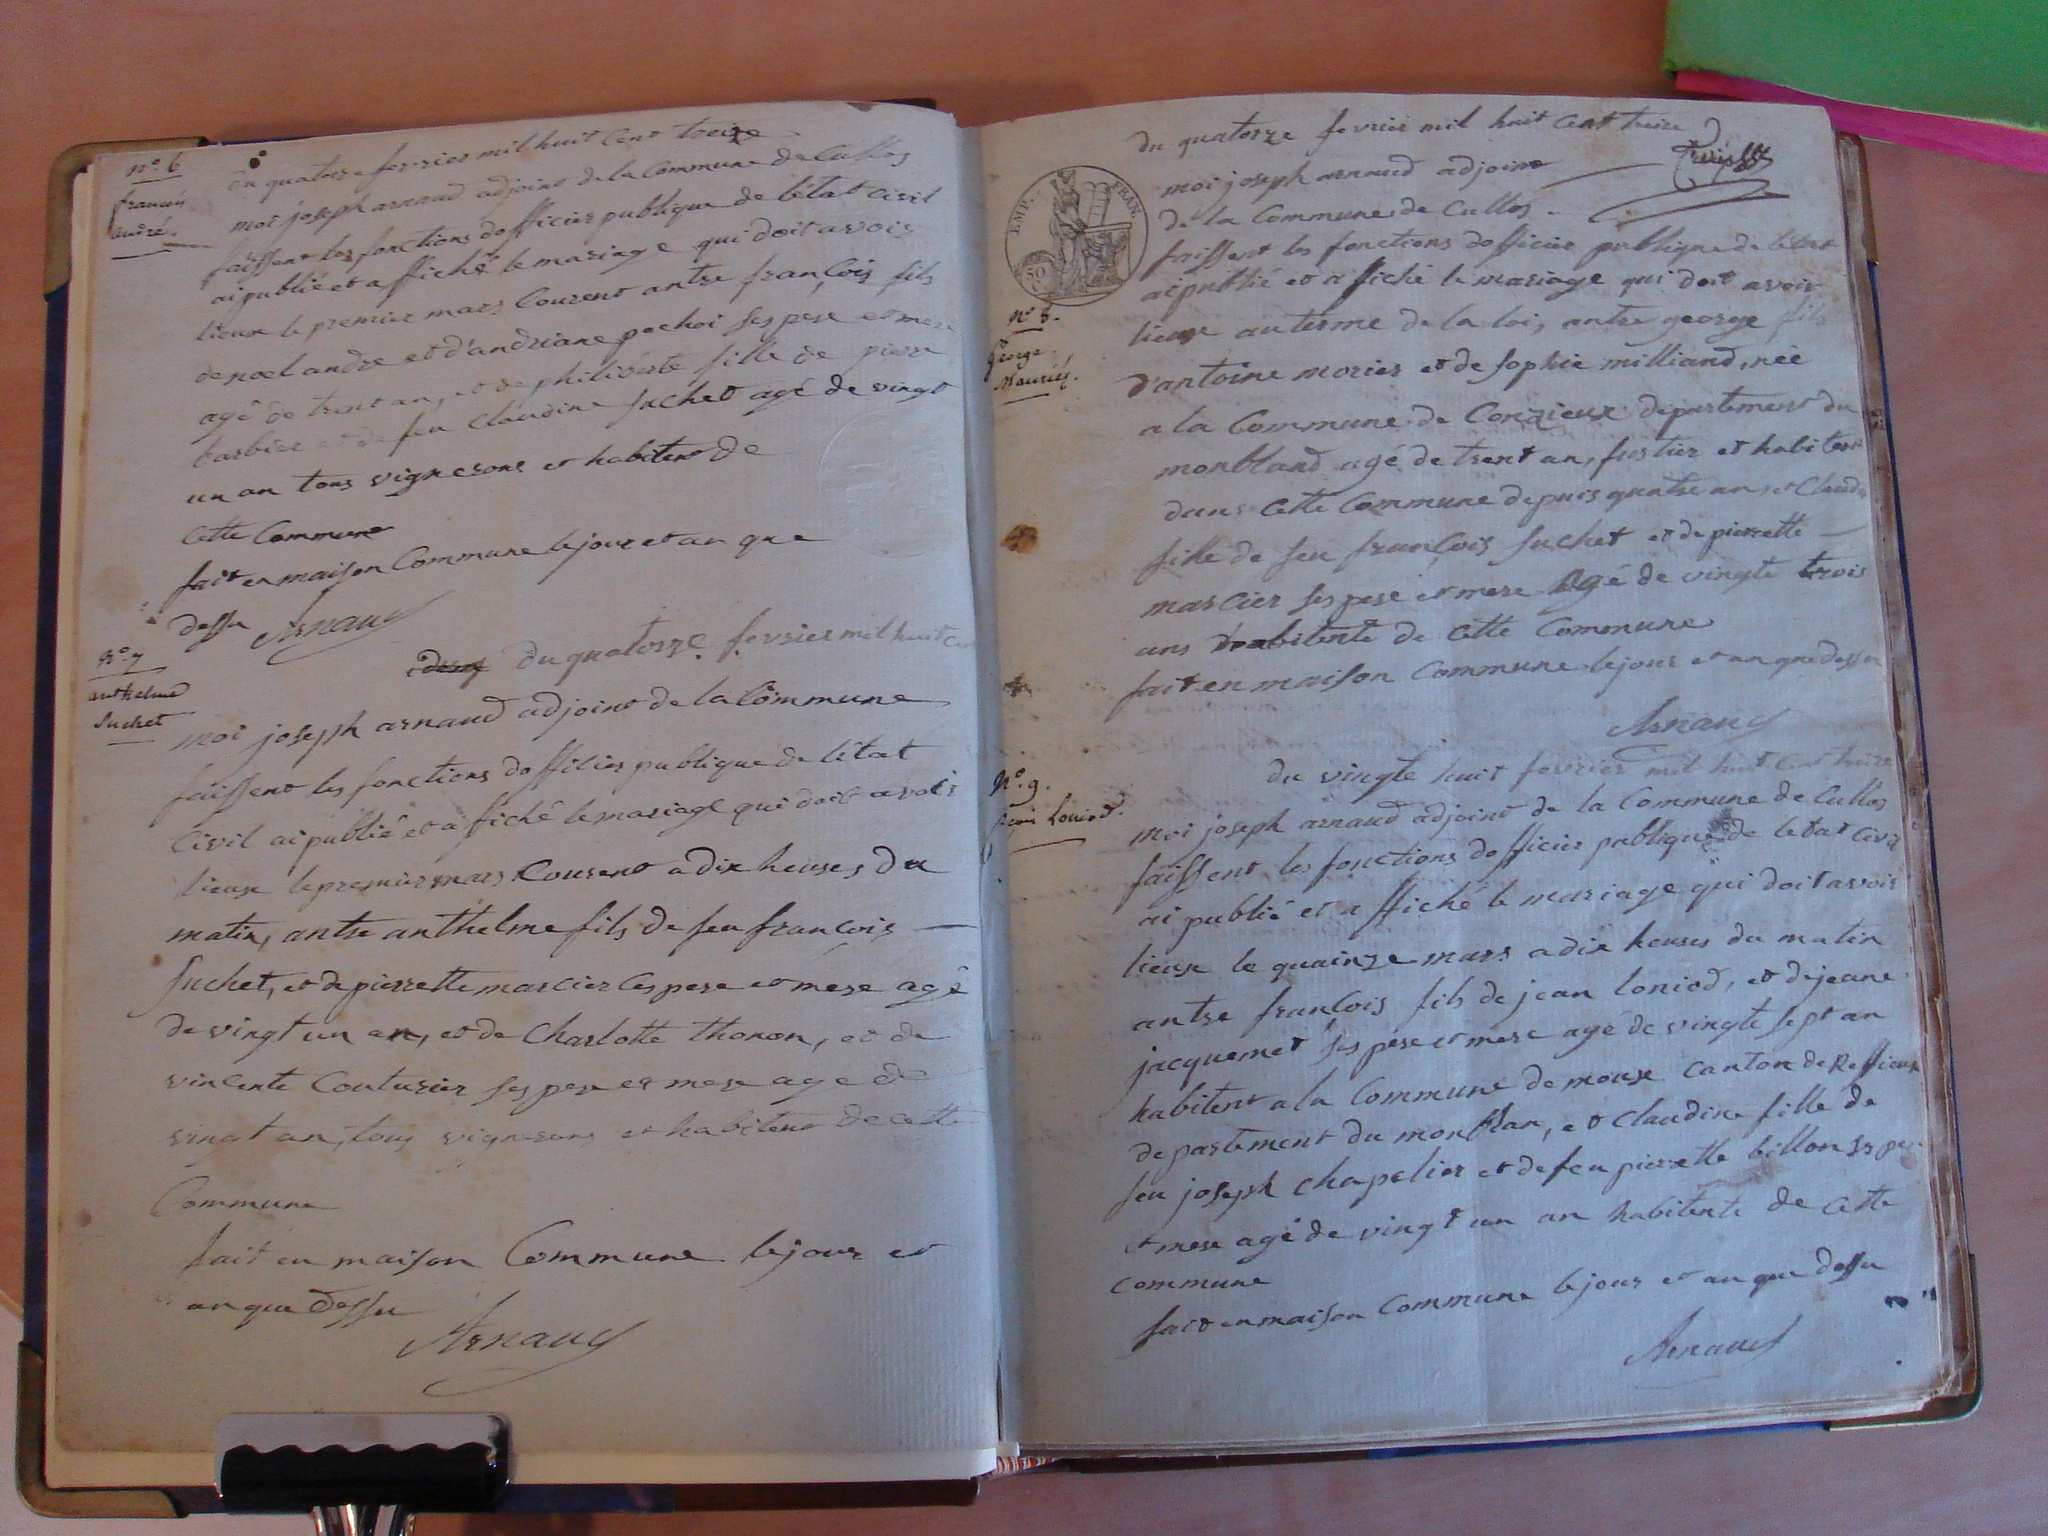 n° 6
françois
andré.
du quatorze fevrier mil huit Cent treize
moi joseph arnaud adjoint de la Commune de Culloz
faissent les fonctions dofficier publique de letat Civil
ai publié et affiché le mariage qui doit avoir
lieux le premier mars Courent antre françois fils
de noel andre et d'andriane pochoi ses pere et mere
agé de trent an, et de philiberte fille de pierre
barbier et de feu Claudine suchet agé de vingt
un an tous vignerons et habitent de
cette Commune
fait en maison Commune le jour et an que
dessu Arnaud
n° 7
anthelme
suchet
du quatorze fevrier mil huit Cent
moi joseph arnaud adjoint de la Commune
faissent les fonctions dofficier publique de letat
Civil ai publié et affiché le mariage qui doit avoir
lieux le premier mars Courent a dix heures du
matin, antre anthelme fils de feu françois
suchet, et de pierrette marcier ces pere et mere agé
de vingt un an, et de Charlotte thonon, et de
vincente Couturier ses pere et mere age de
vingt an, tous vignerons et habitent de cette
Commune
fait en maison Commune le jour et
an que dessu
Arnaud
EMP. FRAN.
50 C
du quatorze fevrier mil huit Cent treize
moi joseph arnaud adjoint
de la Commune de Culloz
faissent les fonctions dofficier publique de letat
ai publié et affiché le mariage qui doit avoir
n° 8.
George
Maurier.
lieux au terme de la loi, antre george fils
d'antoine morier et de sophie milliand, née
a la Commune de Conzieux departement du
monbland agé de trent an, fustier et habitent
dans Cette Commune depuis quatre an, et Claudine
fille de feu françois suchet et de pierrette
marcier ses pere et mere Agé de vingte trois
ans habitente de Cette Commune
fait en maison Commune le jour et an que dessu
Arnaud
n° 9.
Loniod.
du vingte huit fevrier mil huit Cent treize
moi joseph arnaud adjoint de la Commune de Culloz
faissent les fonctions dofficier publique de letat Civil
ai publié et affiché le mariage qui doit avoir
lieux le quainze mars a dix heures du matin
antre françois fils de jean loniod, et de jeane
jacquemet ses pere et mere agé de vingte sept an
habitent a la Commune de moux Canton de Reffieux
departement du monblan, et Claudine fille de
feu joseph Chapelier et de feu pierrette billon ses pere
et mere agé de vingt un an habitente de Cette
Commune
fait en maison Commune le jour et an que dessu
Arnaud